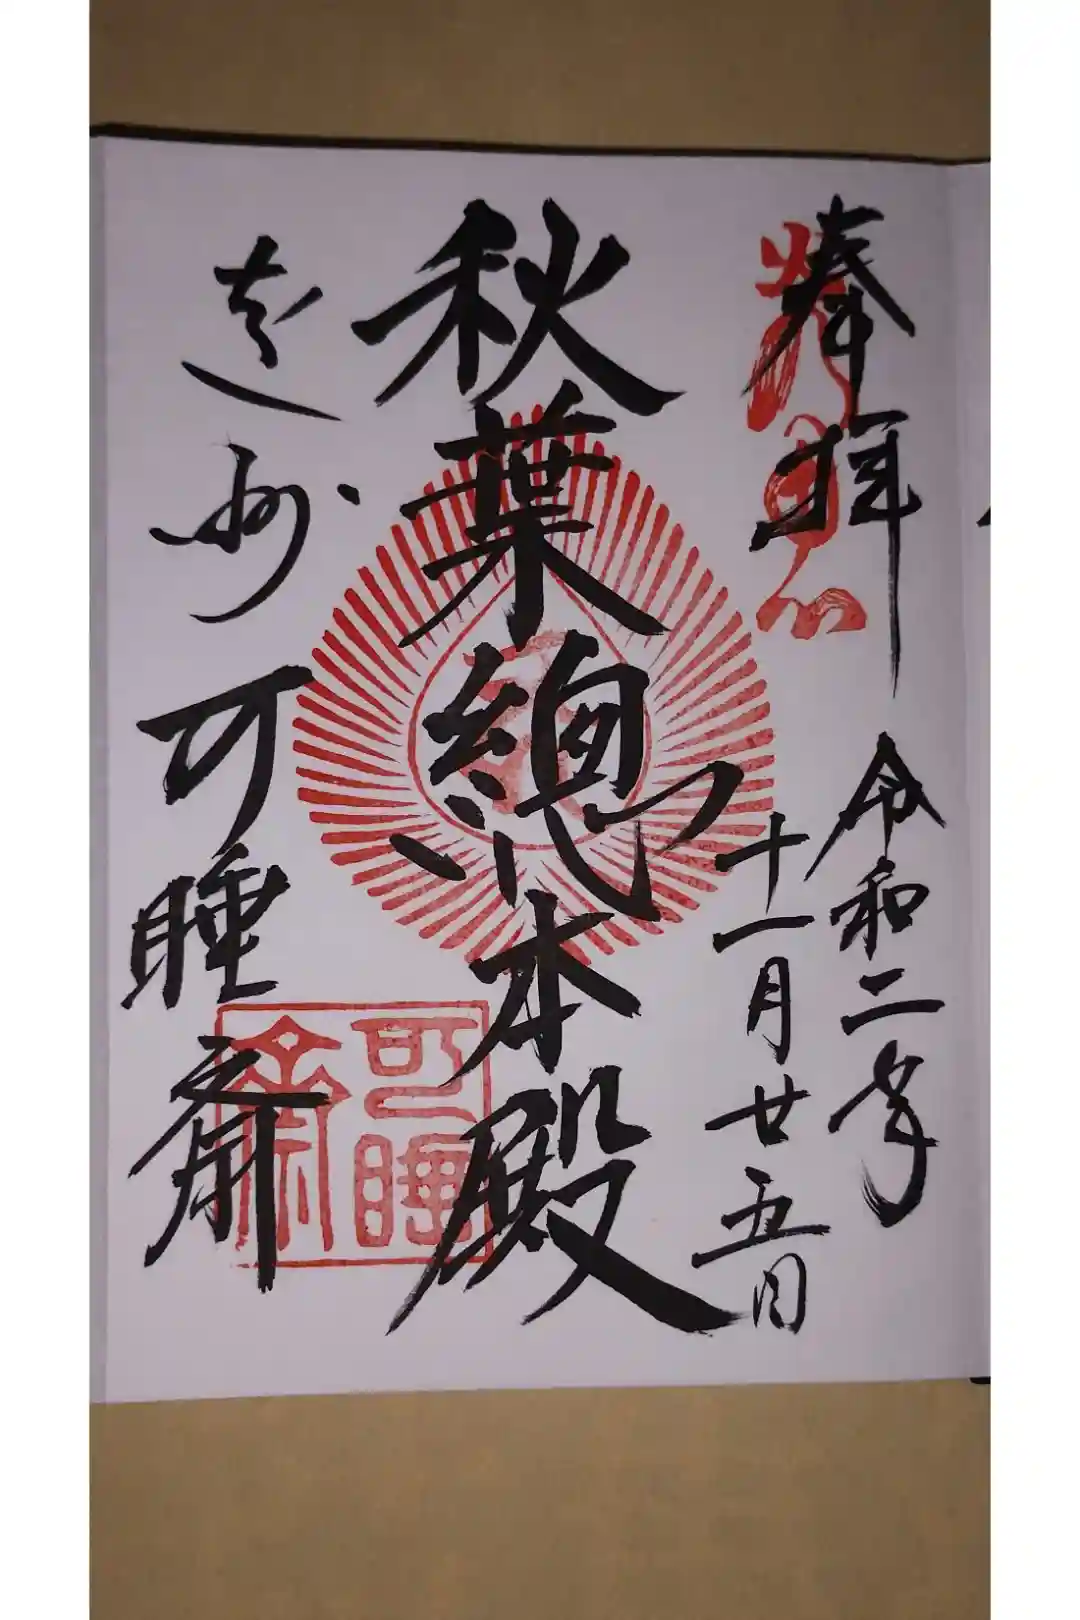 奉拝
令和二年
十一月廿五日
秋葉總本殿
遠州可睡斎
可睡
斎